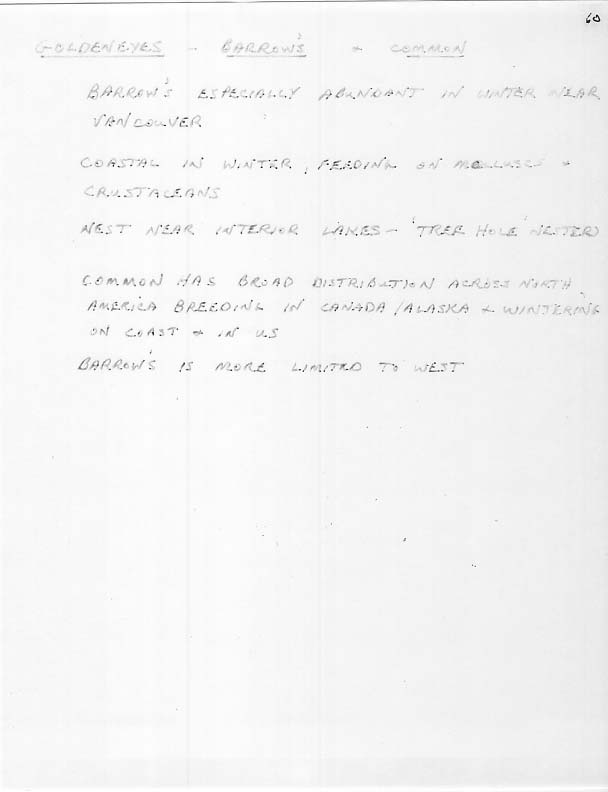 60
GOLDENEYES - BARROW'S & COMMON
BARROW'S ESPECIALLY ABUNDANT IN WINTER NEAR
VANCOUVER
COASTAL IN WINTER, FEEDING ON MOLLUSCS &
CRUSTACEANS
NEST NEAR INTERIOR LAKES - 'TREE HOLE' NESTER)
COMMON HAS BROAD DISTRIBUTION ACROSS NORTH
AMERICA BREEDING IN CANADA/ALASKA & WINTERING
ON COAST & IN US
BARROW'S IS MORE LIMITED TO WEST